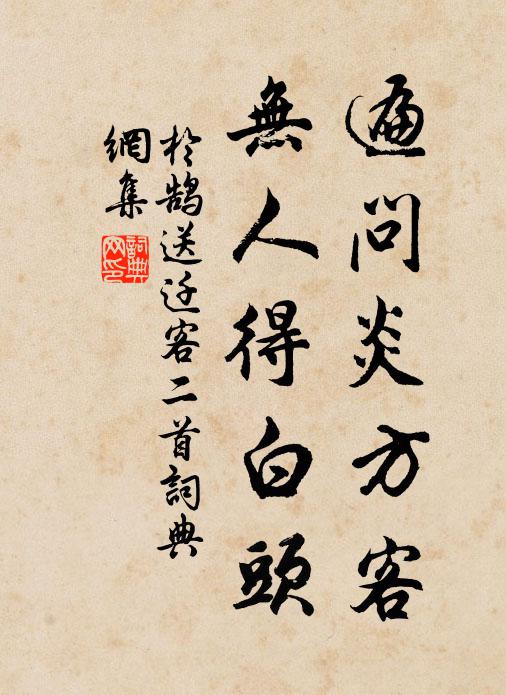 遍問炎方客
無人得白頭
於鵠送迁客二首詞典
網集
詞典
网印